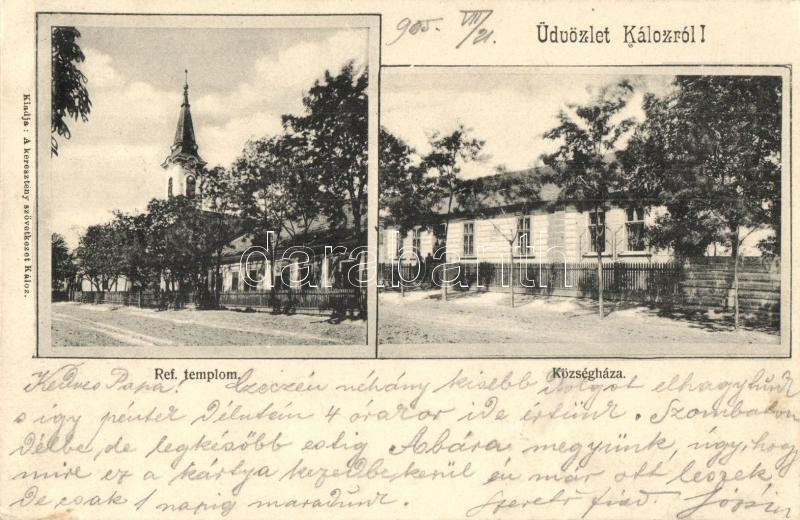 905 VIII/21.
Üdvözlet Kálozról!
Kiadja: A keresztény szövetkezet Káloz.
darabanth
Ref. templom.
Községháza.
Kedves Papa! néhány kisebb dolgot elhagytunk
s igy pentek délután 4 órakor ide értünk. Szombaton
délbe, de legkésőbb estig Abára megyünk, úgy, hogy
mire ez a kártya kezedbe kerül én már ott leszek
de csak 1 napig maradunk. Szerető fiad